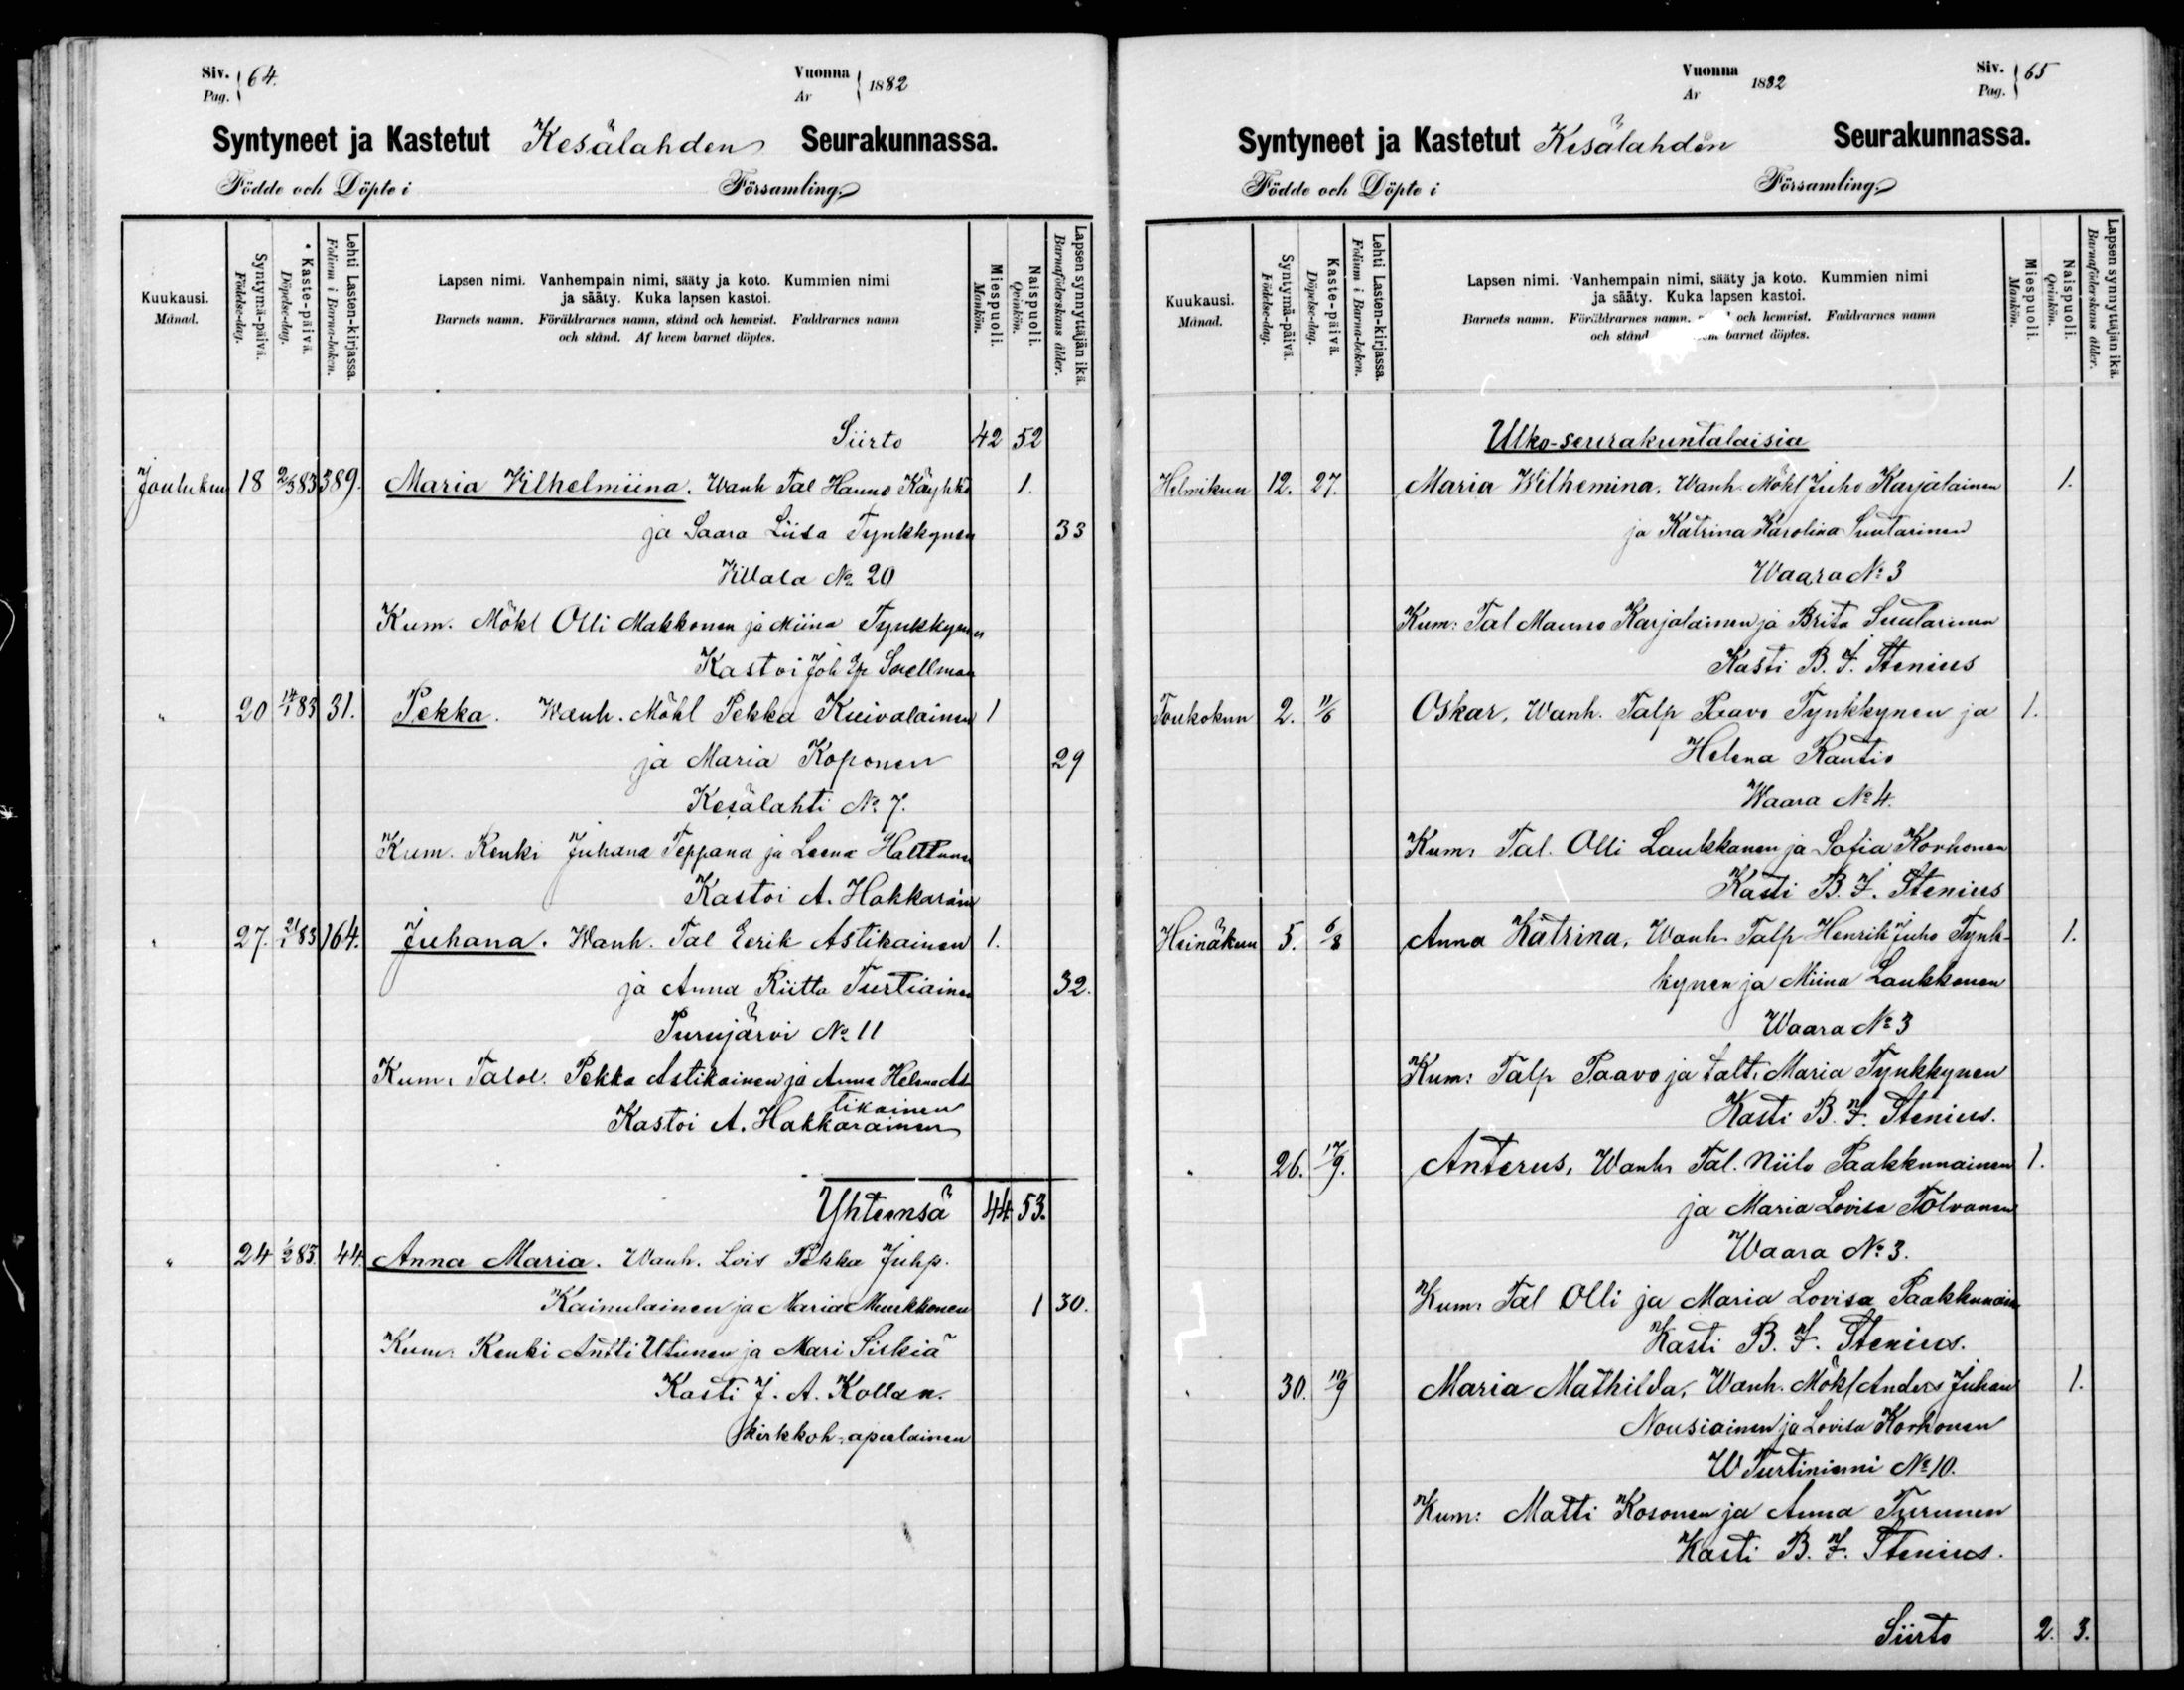 Siv. 64.
Pag.
Vuonna 1882
År
Syntyneet ja Kastetut Kesälahden Seurakunnassa.
Födde och Döpte i Församling.
Kuukausi.
Månad.
Syntymä-päivä.
Födelse-dag.
Kaste-päivä.
Döpelse-dag.
Lehti Lasten-kirjassa.
Folium i Barna-boken.
Lapsen nimi. Vanhempain nimi, sääty ja koto. Kummien nimi
ja sääty. Kuka lapsen kastoi.
Barnets namn. Föräldrarnes namn, stånd och hemvist. Faddrarnes namn
och stånd. Af hvem barnet döptes.
Miespuoli.
Mankön.
Naispuoli.
Qvinkön.
Lapsen synnyttäjän ikä.
Barnaföderskans ålder.
Siirto 42 52
Joulukun 18 2/3 83 389. Maria Vilhelmiina. Wanh Tal Hanno Käyhkö 1.
ja Saara Liisa Tynkkynen 33
Villala No 20
Kum. Mökl Olli Makkonen ja Miina Tynkkynen
Kastoi Joh Snellman
" 20 14/1 83 31. Pekka. Wanh. Mökl Pekka Kuivalainen 1
ja Maria Koponen 29
Kesälahti No 7.
Kum. Renki Juhana Teppana ja Leena Halttunen
Kastoi A. Hakkarain
" 27. 21/1 83 164. Juhana. Wanh. Tal Eerik Astikainen 1.
ja Anna Riitta Turtiainen 32.
Purujärvi No 11
Kum. Talol. Pekka Astikainen ja Anna Helena As-
tikainen
Kastoi A. Hakkarainen
Yhteensä 44 53.
" 24 1/2 83. 44. Anna Maria. Wanh. Lois Pekka Juhp.
Kainulainen ja Maria Muukkonen 1 30.
Kum. Renki Antti Utunen ja Mari Siskiä
Kasti J. A. Kollan.
kirkkoh-apulainen
Vuonna 1882
År
Siv. 65
Pag.
Syntyneet ja Kastetut Kesälahden Seurakunnassa.
Födde och Döpte i Församling.
Kuukausi.
Månad.
Syntymä-päivä.
Födelse-dag.
Kaste-päivä.
Döpelse-dag.
Lehti Lasten-kirjassa.
Folium i Barna-boken.
Lapsen nimi. Vanhempain nimi, sääty ja koto. Kummien nimi
ja sääty. Kuka lapsen kastoi.
Barnets namn. Föräldrarnes namn, och hemvist. Faddrarnes namn
och stånd barnet döptes.
Miespuoli.
Mankön.
Naispuoli.
Qvinkön.
Lapsen synnyttäjän ikä.
Barnaföderskans ålder.
Ulko-seurakuntalaisia
Helmikun 12. 27. Maria Wilhemina. Wanh. Mökl Juho Karjalainen 1.
ja Katrina Karolina Suutarinen
Waara No 3
Kum: Tal Mauno Karjalainen ja Brita Suutarinen
Kasti B. F. Stenius
Toukokun 2. 11/6 Oskar, Wanh. Talp Paavo Tynkkynen ja 1.
Helena Rautio
Waara No 4.
Kum. Tal. Olli Laukkanen ja Sofia Korhonen
Kasti B. F. Stenius
Heinäkun 5. 6/8 Anna Katrina. Wanh. Talp Henrik Juho Tynk- 1.
kynen ja Miina Laukkonen
Waara No 3
Kum: Talp Paavo ja talt. Maria Tynkkynen
Kasti B. F. Stenius.
" 26. 17/9. Anterus, Wanh. Tal. Niilo Paakkunainen 1.
ja Maria Lovisa Tolvanen
Waara No 3.
Kum. Tal Olli ja Maria Lovisa Paakkunain
Kasti B. F. Stenius.
" 30. 17/9 Maria Mathilda. Wanh. Mökl Anders Juhan 1.
Nousiainen ja Lovisa Korhonen
W Turtiniemi No 10.
Kum: Matti Kosonen ja Anna Turunen
Kasti B. F. Stenius.
Siirto 2. 3.